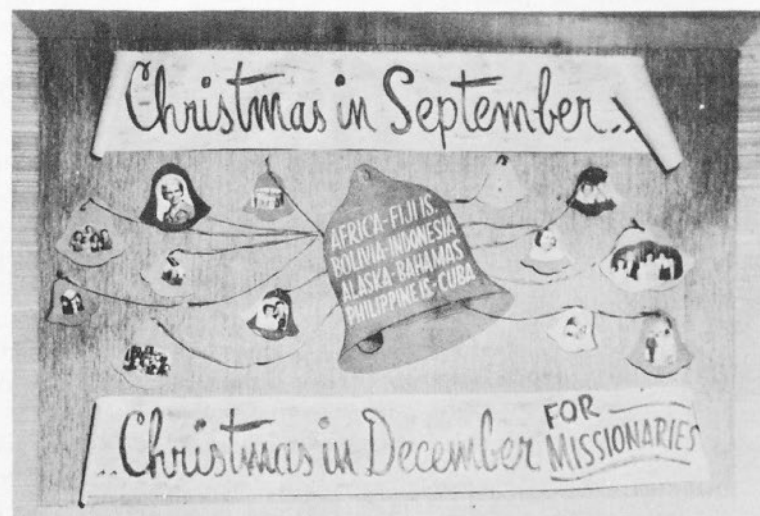 Christmas in September..
AFRICA-FIJI IS.
BOLIVIA-INDONESIA
ALASKA-BAHAMAS
PHILIPPINE IS.-CUBA
..Christmas in December FOR
MISSIONARIES